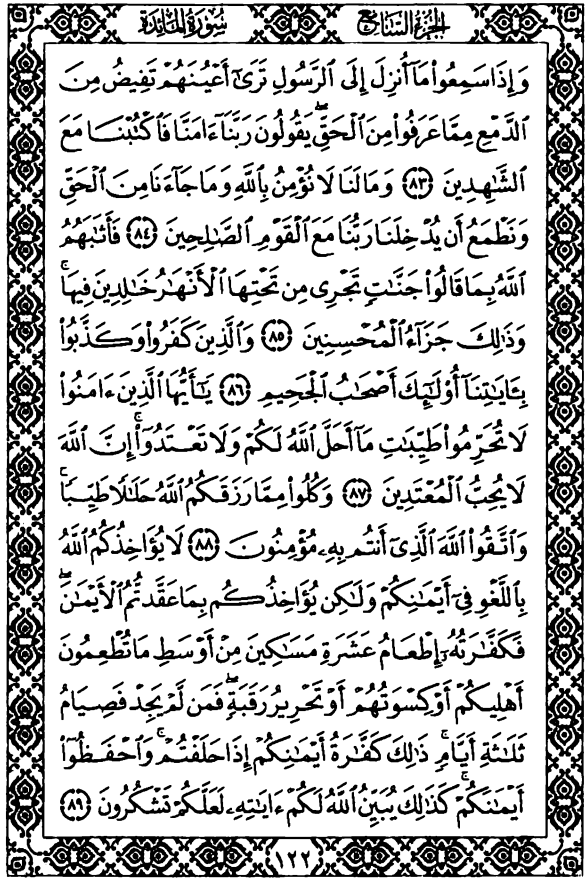 الجزء السابع سورة المائدة
وَإِذَا سَمِعُوا۟ مَآ أُنزِلَ إِلَى ٱلرَّسُولِ تَرَىٰٓ أَعْيُنَهُمْ تَفِيضُ مِنَ
ٱلدَّمْعِ مِمَّا عَرَفُوا۟ مِنَ ٱلْحَقِّ ۖ يَقُولُونَ رَبَّنَآ ءَامَنَّا فَٱكْتُبْنَا مَعَ
ٱلشَّٰهِدِينَ ٨٣ وَمَا لَنَا لَا نُؤْمِنُ بِٱللَّهِ وَمَا جَآءَنَا مِنَ ٱلْحَقِّ
وَنَطْمَعُ أَن يُدْخِلَنَا رَبُّنَا مَعَ ٱلْقَوْمِ ٱلصَّٰلِحِينَ ٨٤ فَأَثَٰبَهُمُ
ٱللَّهُ بِمَا قَالُوا۟ جَنَّٰتٍ تَجْرِى مِن تَحْتِهَا ٱلْأَنْهَٰرُ خَٰلِدِينَ فِيهَا ۚ
وَذَٰلِكَ جَزَآءُ ٱلْمُحْسِنِينَ ٨٥ وَٱلَّذِينَ كَفَرُوا۟ وَكَذَّبُوا۟
بِـَٔايَٰتِنَآ أُو۟لَٰٓئِكَ أَصْحَٰبُ ٱلْجَحِيمِ ٨٦ يَٰٓأَيُّهَا ٱلَّذِينَ ءَامَنُوا۟
لَا تُحَرِّمُوا۟ طَيِّبَٰتِ مَآ أَحَلَّ ٱللَّهُ لَكُمْ وَلَا تَعْتَدُوٓا۟ ۚ إِنَّ ٱللَّهَ
لَا يُحِبُّ ٱلْمُعْتَدِينَ ٨٧ وَكُلُوا۟ مِمَّا رَزَقَكُمُ ٱللَّهُ حَلَٰلًا طَيِّبًا ۚ
وَٱتَّقُوا۟ ٱللَّهَ ٱلَّذِىٓ أَنتُم بِهِۦ مُؤْمِنُونَ ٨٨ لَا يُؤَاخِذُكُمُ ٱللَّهُ
بِٱللَّغْوِ فِىٓ أَيْمَٰنِكُمْ وَلَٰكِن يُؤَاخِذُكُم بِمَا عَقَّدتُّمُ ٱلْأَيْمَٰنَ ۖ
فَكَفَّٰرَتُهُۥٓ إِطْعَامُ عَشَرَةِ مَسَٰكِينَ مِنْ أَوْسَطِ مَا تُطْعِمُونَ
أَهْلِيكُمْ أَوْ كِسْوَتُهُمْ أَوْ تَحْرِيرُ رَقَبَةٍ ۖ فَمَن لَّمْ يَجِدْ فَصِيَامُ
ثَلَٰثَةِ أَيَّامٍ ۚ ذَٰلِكَ كَفَّٰرَةُ أَيْمَٰنِكُمْ إِذَا حَلَفْتُمْ ۚ وَٱحْفَظُوٓا۟
أَيْمَٰنَكُمْ ۚ كَذَٰلِكَ يُبَيِّنُ ٱللَّهُ لَكُمْ ءَايَٰتِهِۦ لَعَلَّكُمْ تَشْكُرُونَ ٨٩
١٢٢